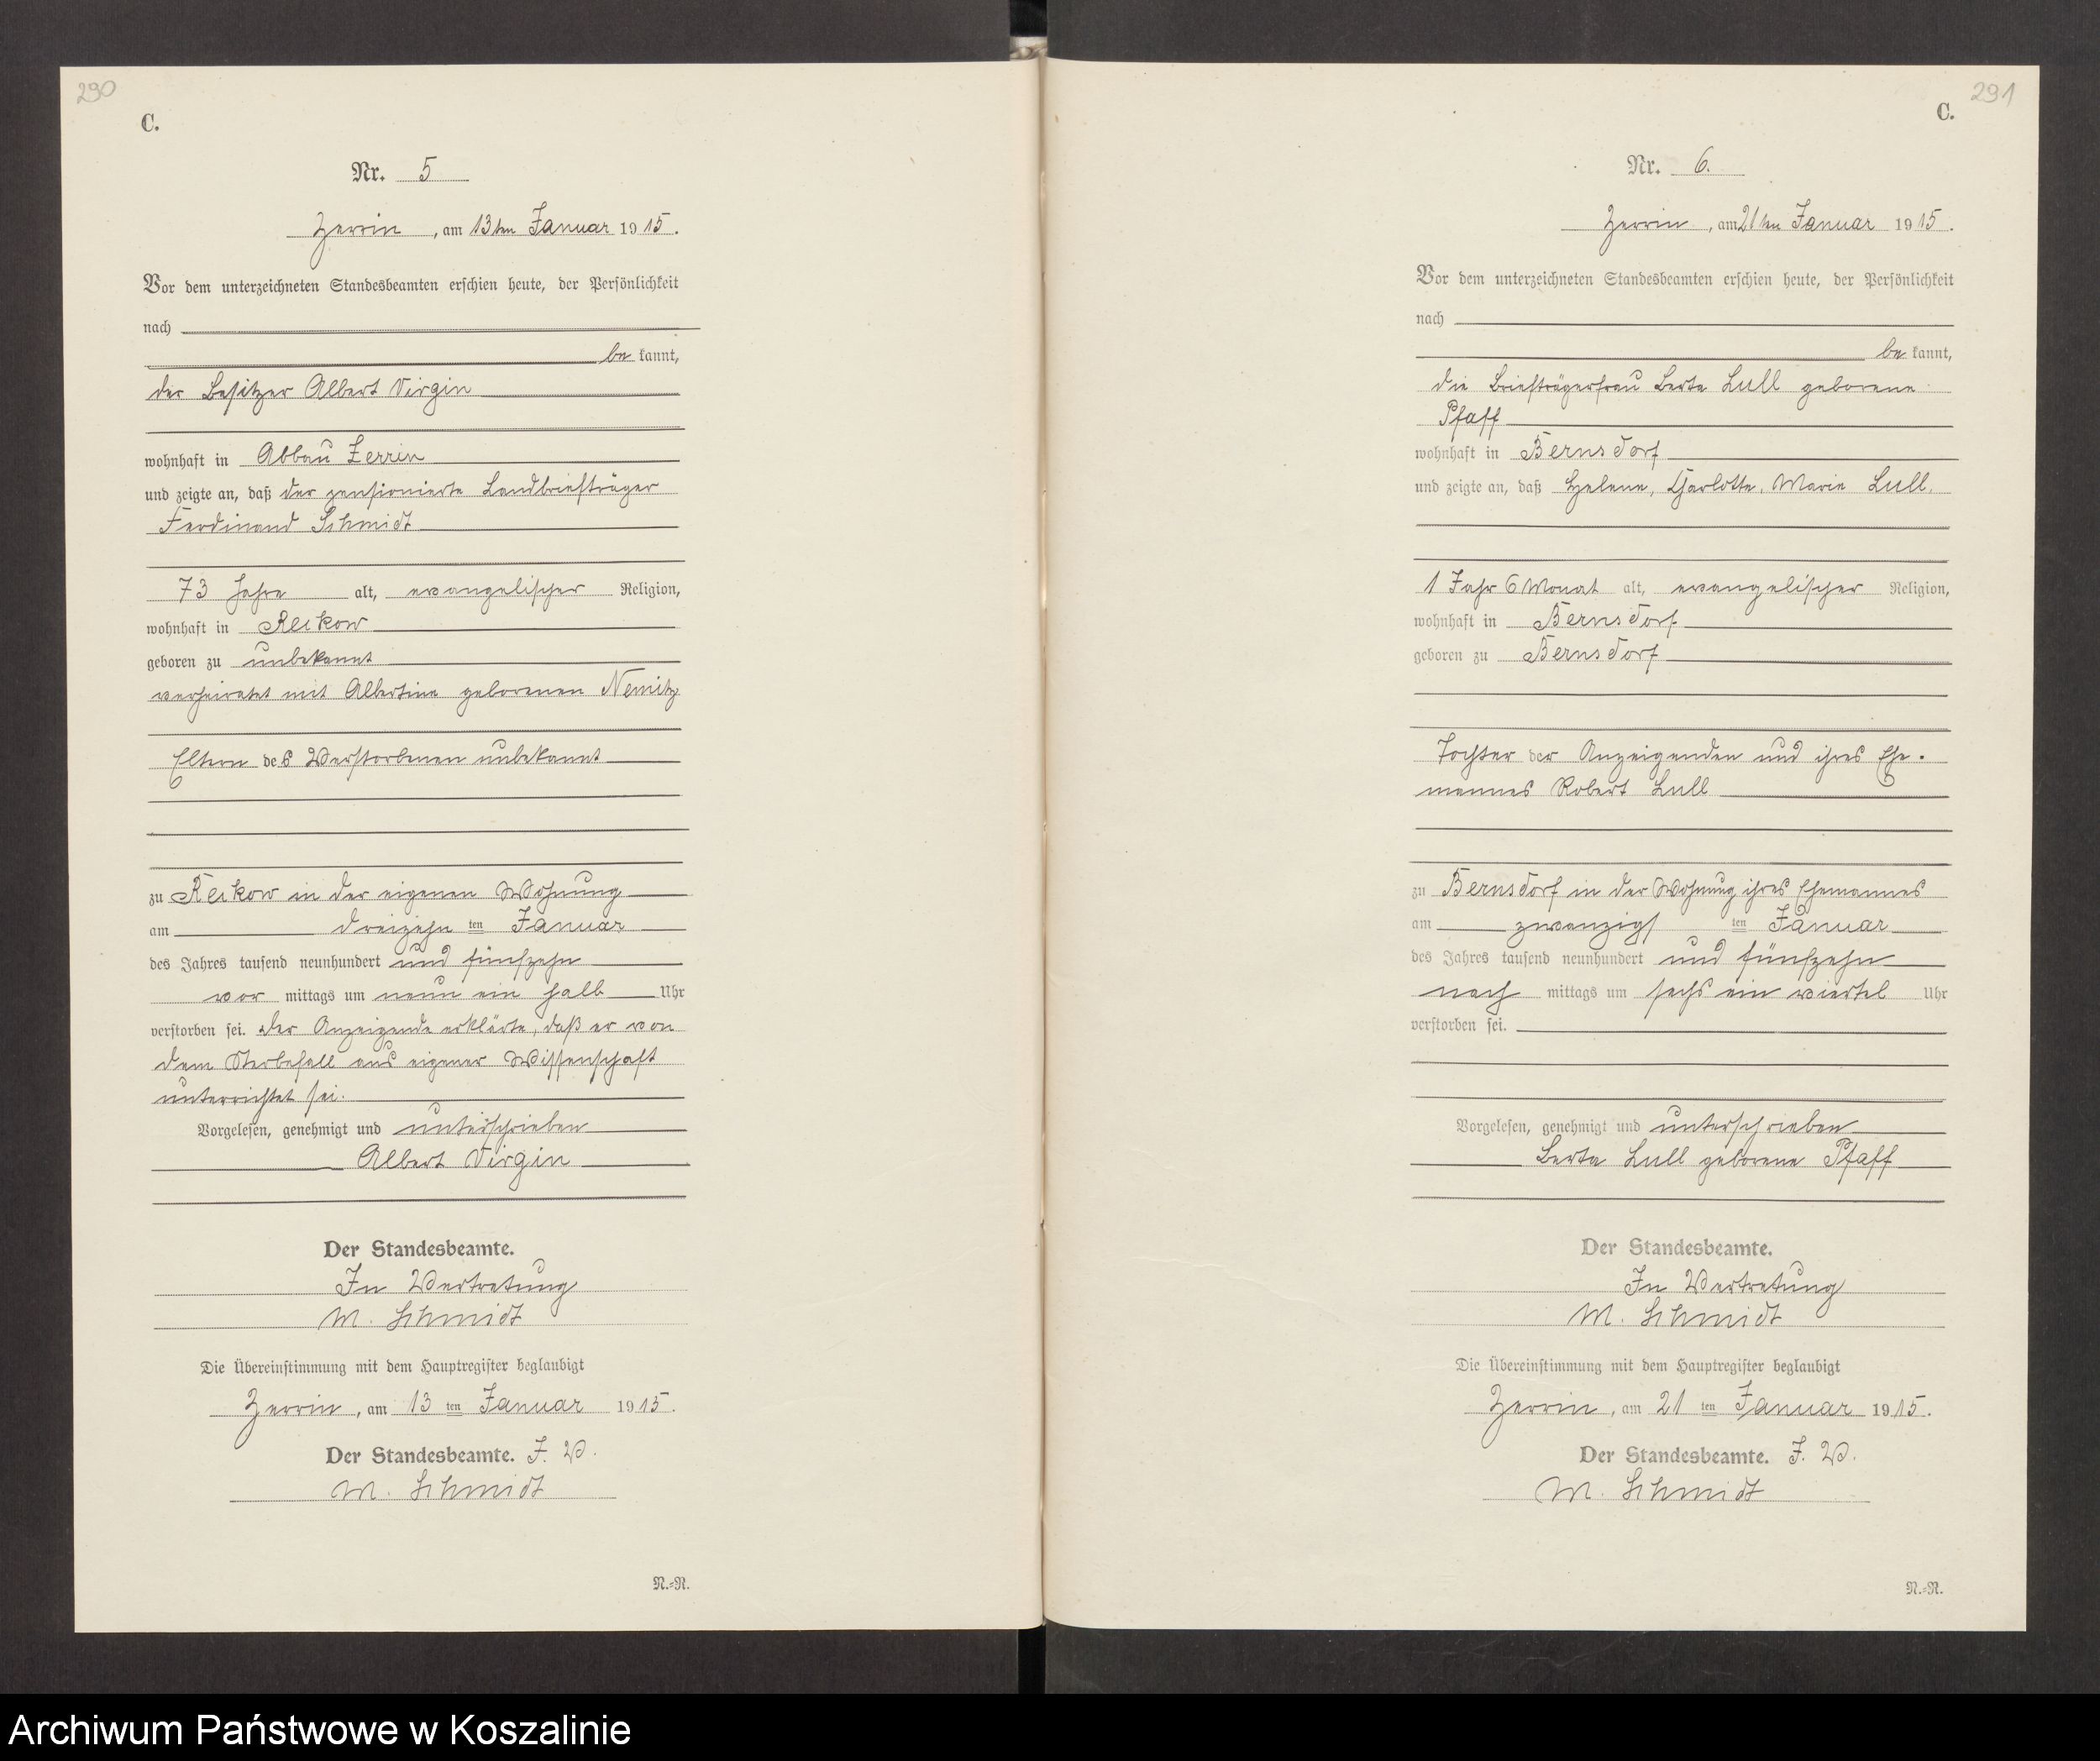 290
C.
Nr. 5
Zerrin, am 13ten Januar 1915.
Vor dem unterzeichneten Standesbeamten erschien heute, der Persönlichkeit
nach
be kannt,
der Besitzer Albert Virgin
wohnhaft in Abbau Zerrin
und zeigte an, daß der pensionierte Landbriefträger
Ferdinand Schmidt
73 Jahre alt, evangelischer Religion,
wohnhaft in Reckow
geboren zu unbekannt
verheiratet mit Albertine geborenen Nemitz
Eltern des Verstorbenen unbekannt
zu Reckow in der eigenen Wohnung
am dreizehn ten Januar
des Jahres tausend neunhundert und fünfzehn
vor mittags um neun ein halb Uhr
verstorben sei. Der Anzeigende erklärte, daß er von
dem Sterbefall aus eigener Wissenschaft
unterrichtet sei.
Vorgelesen, genehmigt und unterschrieben
Albert Virgin
Der Standesbeamte.
In Vertretung
M. Schmidt
Die Übereinstimmung mit dem Hauptregister beglaubigt
Zerrin, am 13 ten Januar 1915.
Der Standesbeamte. I. V.
M. Schmidt
N.=R.
291
C.
Nr. 6.
Zerrin, am 21ten Januar 1915.
Vor dem unterzeichneten Standesbeamten erschien heute, der Persönlichkeit
nach
be kannt,
die Briefträgerfrau Berta Lull geborene
Pfaff
wohnhaft in Bernsdorf
und zeigte an, daß Helene, Charlotte, Marie Lull.
1 Jahr 6 Monat alt, evangelischer Religion,
wohnhaft in Bernsdorf
geboren zu Bernsdorf
Tochter der Anzeigenden und ihres Ehe-
mannes Robert Lull
zu Bernsdorf in der Wohnung ihres Ehemannes
am zwanzigs ten Januar
des Jahres tausend neunhundert und fünfzehn
nach mittags um sechs ein viertel Uhr
verstorben sei.
Vorgelesen, genehmigt und unterschrieben
Berta Lull geborene Pfaff
Der Standesbeamte.
In Vertretung
M. Schmidt
Die Übereinstimmung mit dem Hauptregister beglaubigt
Zerrin, am 21 ten Januar 1915.
Der Standesbeamte. I. V.
M. Schmidt
N.=R.
Archiwum Państwowe w Koszalinie